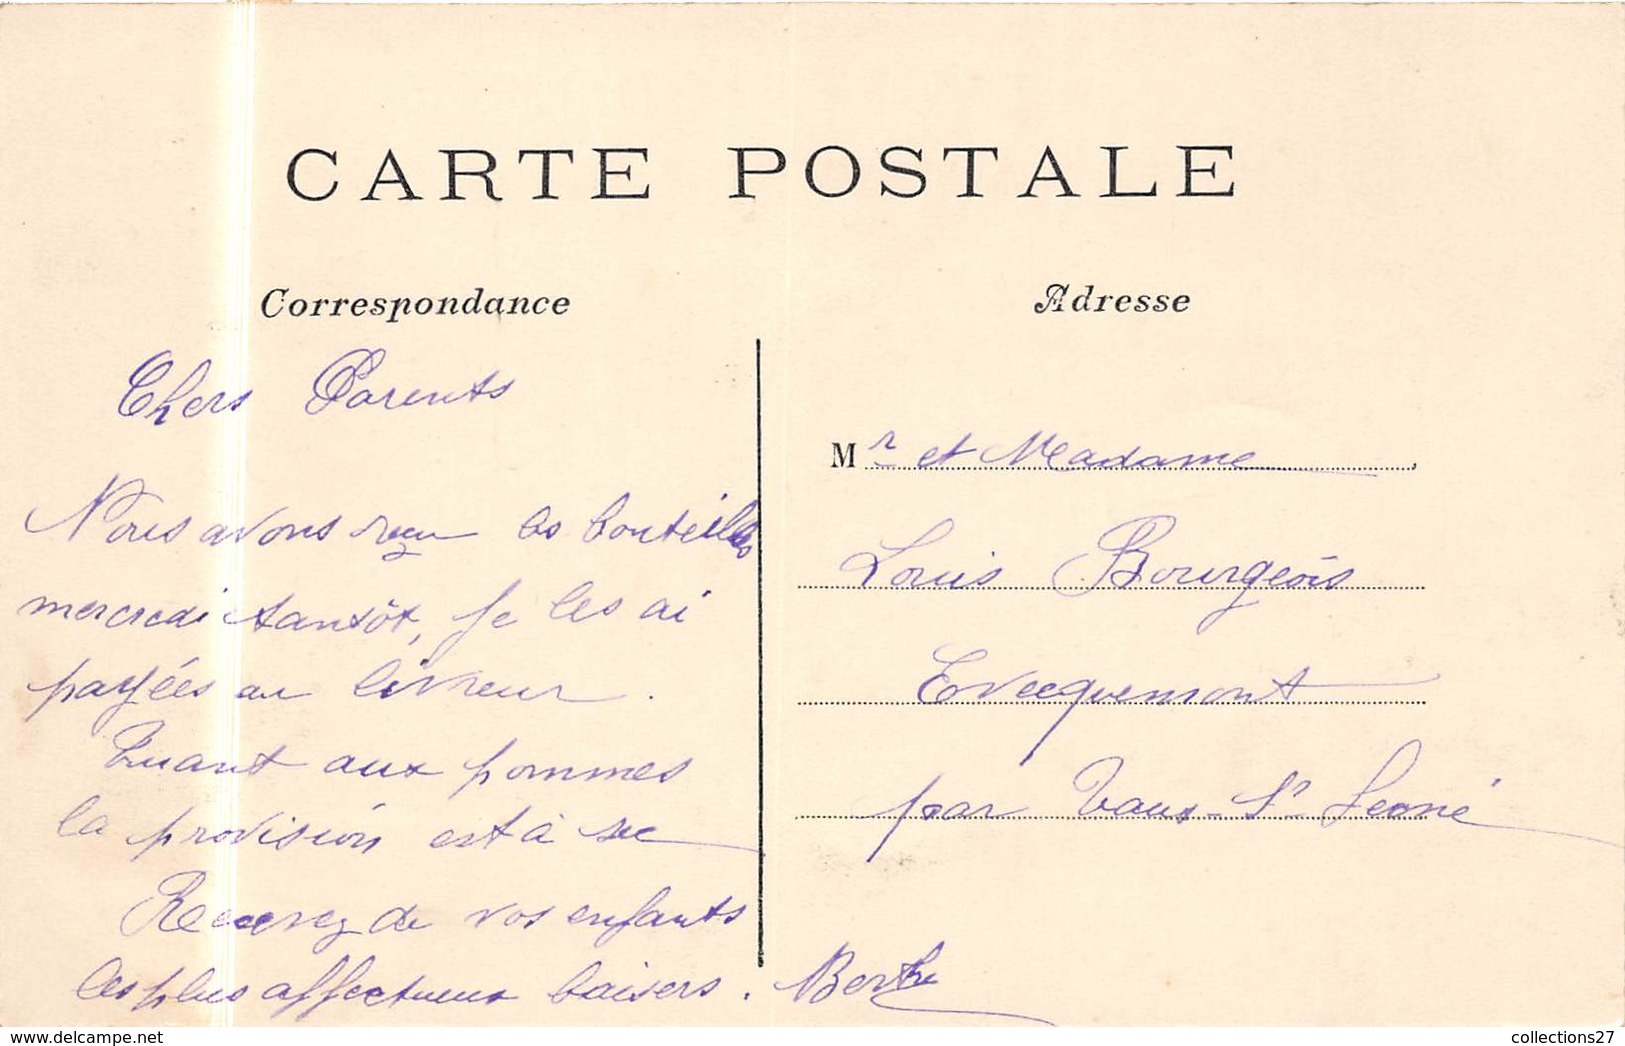 CARTE POSTALE
Correspondance
Adresse
Chers Parents
Nous avons reçu les bouteilles
mercredi tantôt, je les ai
payées au livreur.
Quant aux pommes
la provision est à sec
Recevez de vos enfants
les plus affectueux baisers. Berthe
Mr et Madame
Louis Bourgeois
Evecquemont
par Vaux-St
collections27